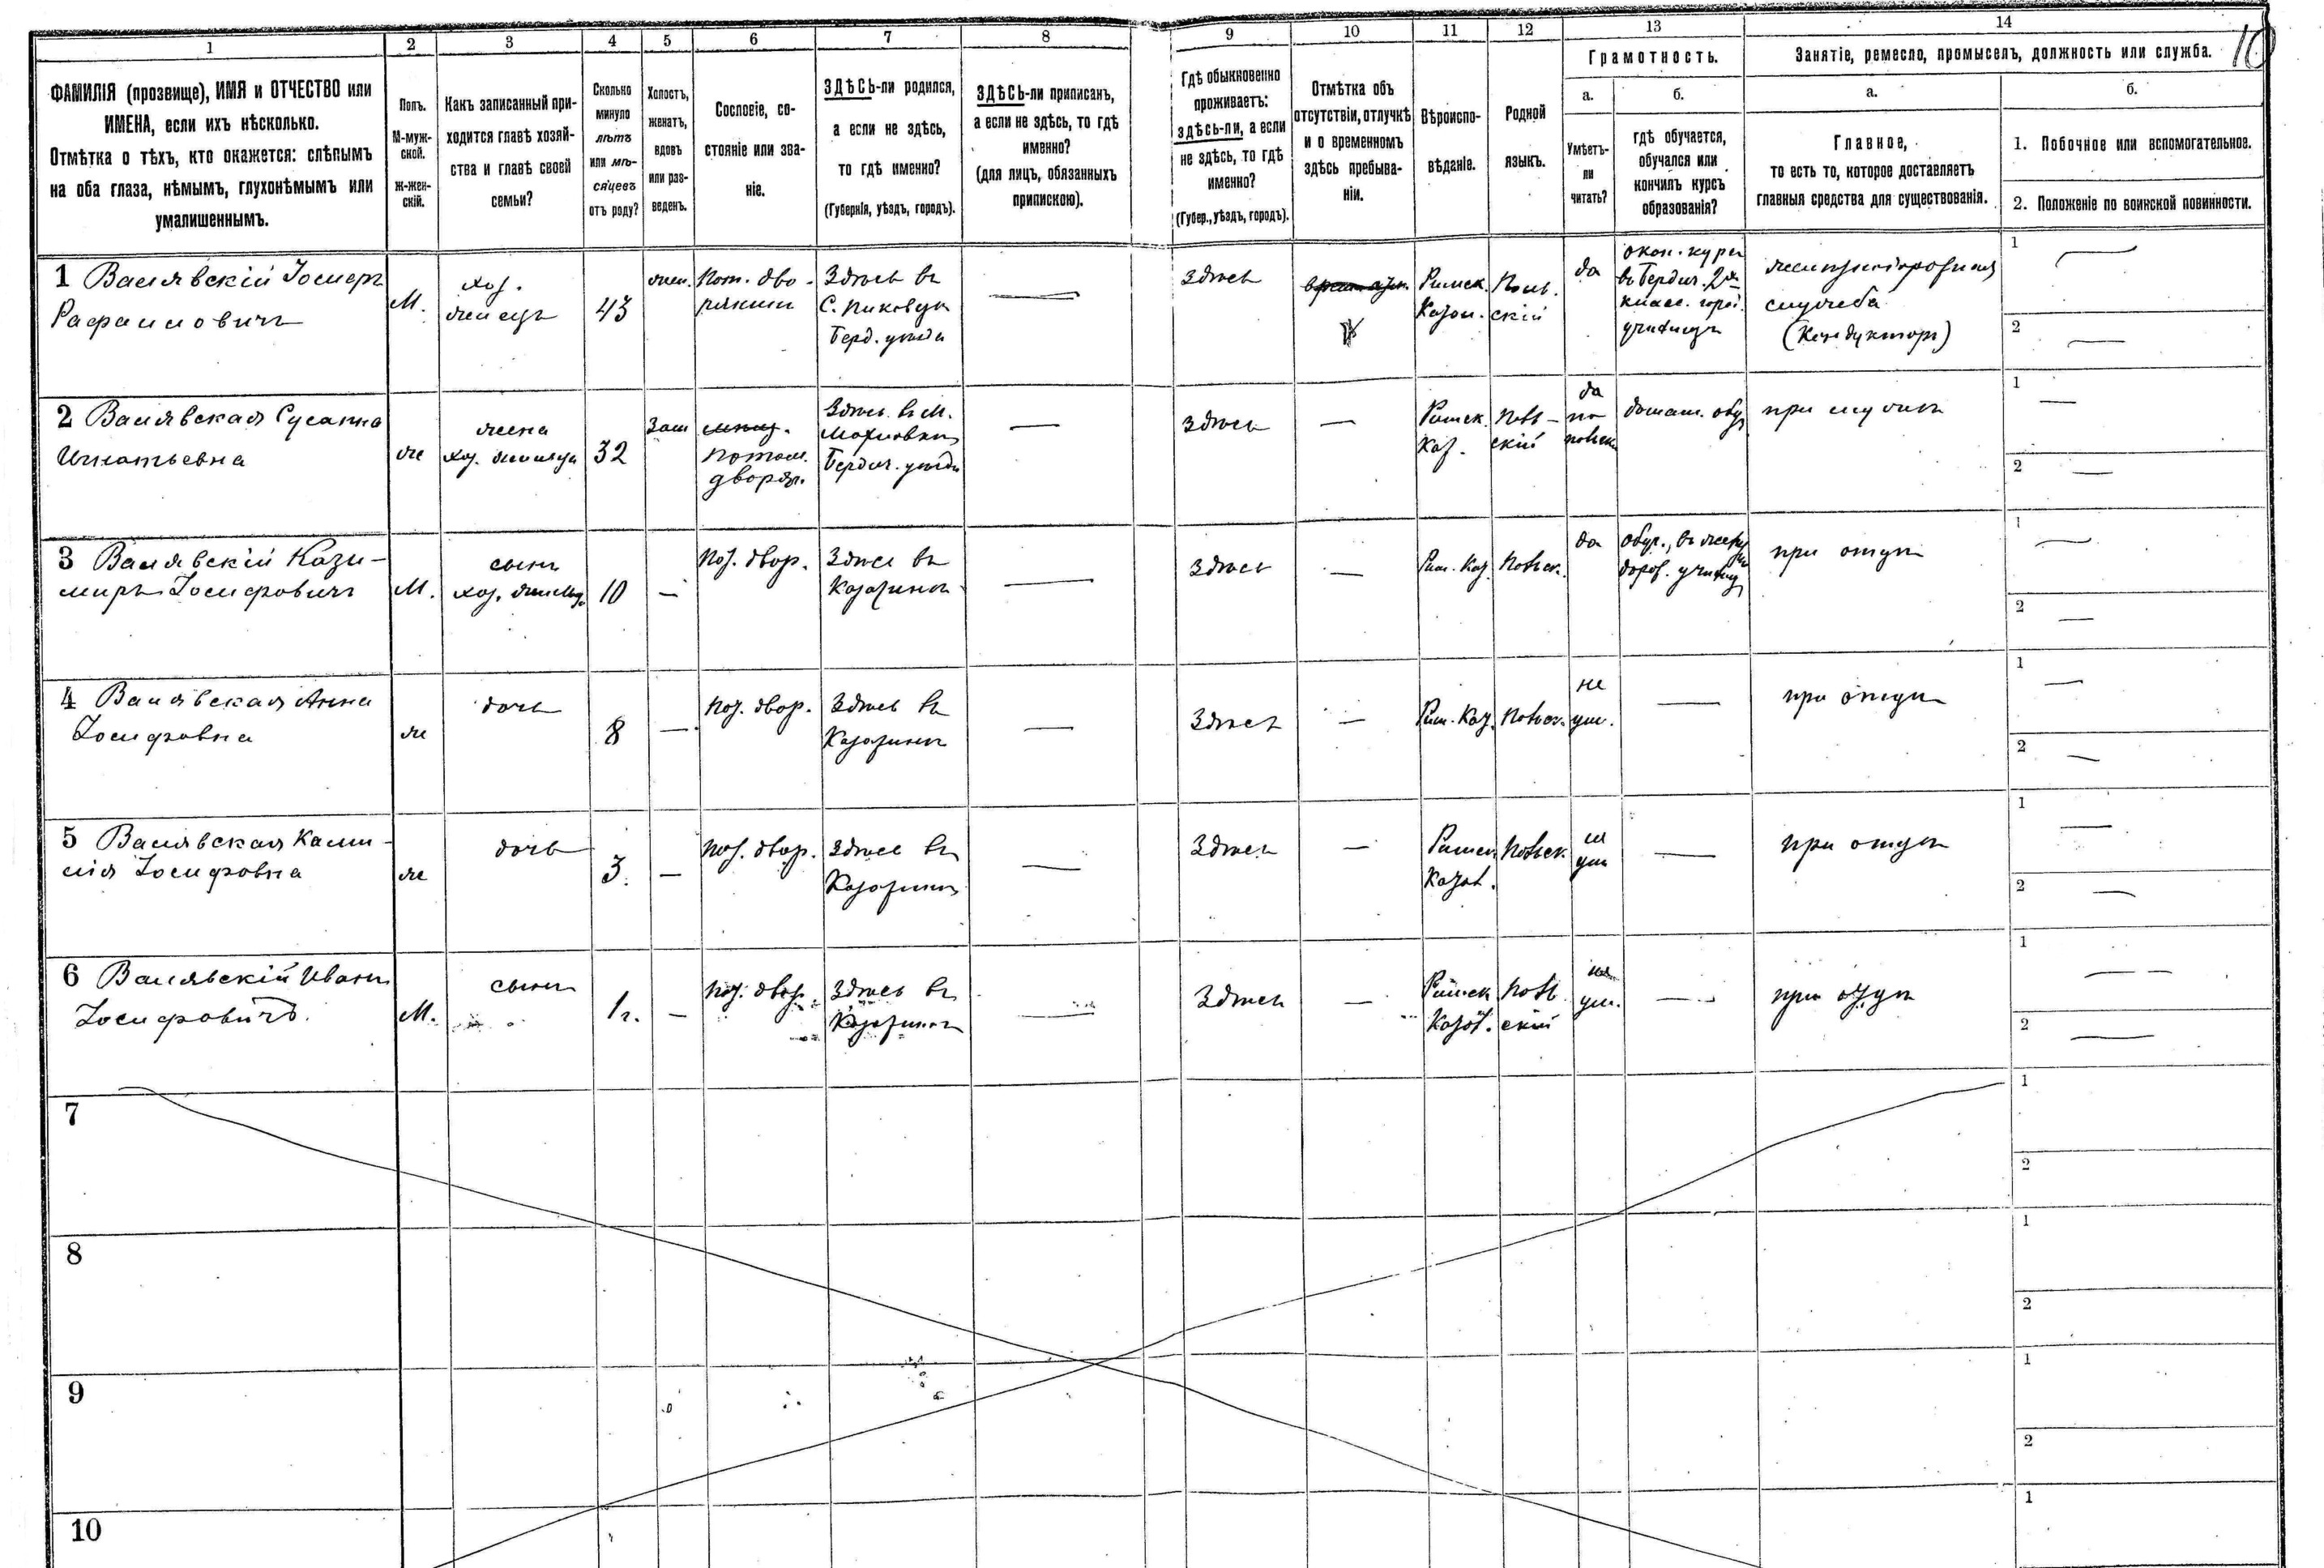 1 2 3 4 5 6 7 8 9 10 11 12 13 14
10
ФАМИЛІЯ (прозвище), ИМЯ и ОТЧЕСТВО или
ИМЕНА, если ихъ нѣсколько.
Отмѣтка о тѣхъ, кто окажется: слѣпымъ
на оба глаза, нѣмымъ, глухонѣмымъ или
умалишеннымъ.
Полъ.
М-муж-
ской.
Ж-жен-
скій.
Какъ записанный при-
ходится главѣ хозяй-
ства и главѣ своей
семьи?
Сколько
минуло
лѣтъ
или мѣ-
сяцевъ
отъ роду?
Холостъ,
женатъ,
вдовъ
или раз-
веденъ.
Сословіе, со-
стояніе или зва-
ніе.
ЗДѢСЬ-ли родился,
а если не здѣсь,
то гдѣ именно?
(Губернія, уѣздъ, городъ).
ЗДѢСЬ-ли приписанъ,
а если не здѣсь, то гдѣ
именно?
(для лицъ, обязанныхъ
припискою).
Гдѣ обыкновенно
проживаетъ:
здѣсь-ли, а если
не здѣсь, то гдѣ
именно?
(Губер., уѣздъ, городъ).
Отмѣтка объ
отсутствіи, отлучкѣ
и о временномъ
здѣсь пребыва-
ніи.
Вѣроиспо-
вѣданіе.
Родной
языкъ.
Грамотность.
а.
Умѣетъ-
ли
читать?
б.
гдѣ обучается,
обучался или
кончилъ курсъ
образованія?
Занятіе, ремесло, промыселъ, должность или служба.
а.
Главное,
то есть то, которое доставляетъ
главныя средства для существованія.
б.
1. Побочное или вспомогательное.
2. Положеніе по воинской повинности.
1 Валявскій Іосифъ
Рафаиловичъ
М.
хоз.
43
жен.
Пот. дво-
рянинъ
Здѣсь въ
С. Пиковцѣ
Берд. уѣзда
Здѣсь
Римск.
Катол.
Поль.
скій
да
окон. курсъ
въ Бердич. 2х
класс. город.
училищѣ
желѣзнодорожная
служба
(Кондукторъ)
1
2
2 Валявская Сусанна
Игнатьевна
ж
жена
32
Зам
потом.
дворян.
Здѣсь въ М.
Махновкѣ
Бердич. уѣзда
Здѣсь
Римск.
Кат.
Поль-
скій
да
по
польски
домаш. обуч
при мужѣ
1
2
3 Валявскій Кази-
миръ Іосифовичъ
М.
сынъ
10
Пот. двор.
Здѣсь въ
Казатинѣ
Здѣсь
Рим. Кат.
Польск.
да
обуч. въ желѣзно
дорож. училищ
при отцѣ
1
2
4 Валявская Анна
Іосифовна
ж
дочь
8
Пот. двор.
Здѣсь въ
Казатинѣ
Здѣсь
Рим. Кат.
Польск.
не
ум.
при отцѣ
1
2
5 Валявская Ками-
лія Іосифовна
ж
дочь
3.
Пот. двор.
Здѣсь въ
Казатинѣ
Здѣсь
Римск
Катол.
Польск.
не
ум
при отцѣ
1
2
6 Валявскій Иванъ
Іосифовичъ.
М.
сынъ
1г.
Пот. двор.
Здѣсь въ
Казатинѣ
Здѣсь
Римск
Катол.
Поль
скій
не
ум.
при отцѣ
1
2
7
1
2
8
1
2
9
1
2
10
1